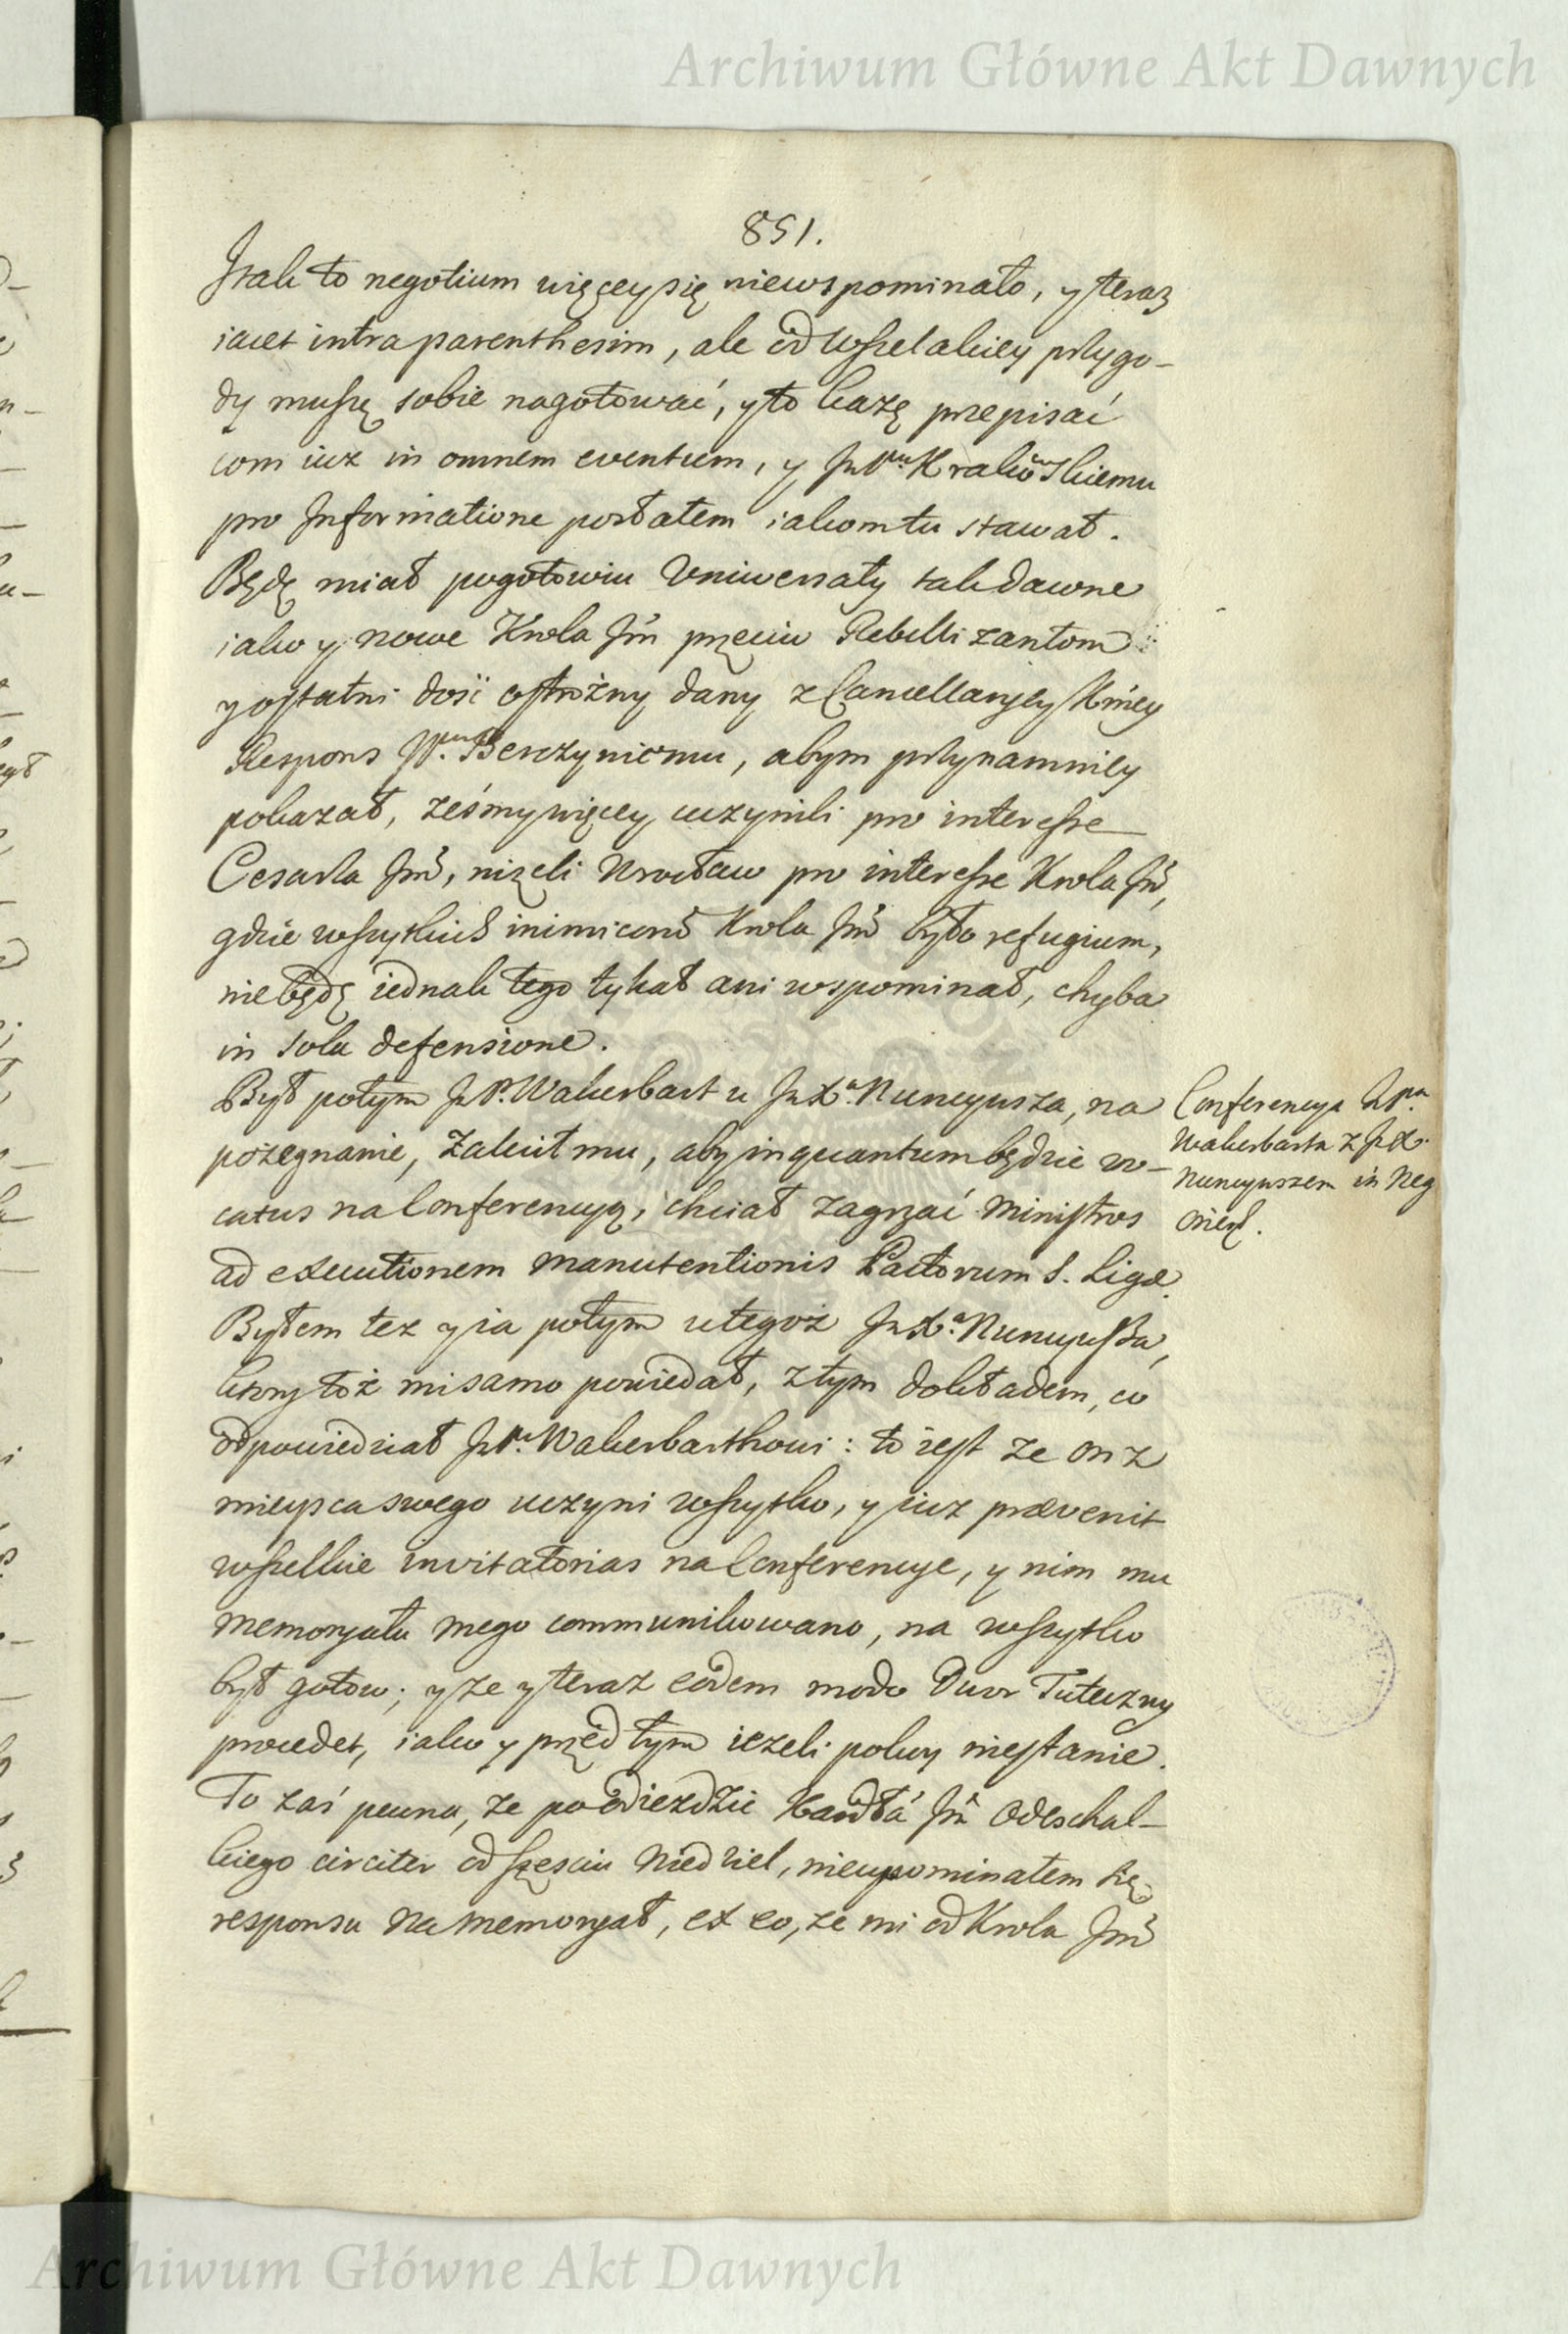 Archiwum Główne Akt Dawnych
851.
Itak to negotium więcey się niewspominało, y teraz
iacet intra parenthesim, ale od wszelakiey przygo-
dy muszę sobie nagotować, y to każę przepisać
com iuz in omnem eventum, y JmPnu Krakowskiemu
pro Informatione posłałem iakom tu stawał.
Będę miał pogotowiu Vniwersały tak dawne
iako y nowe Krola Jm̃ przeciw Rebellizantom
y ostatni dość ostrożny dany z Cancellaryey Km̃ey
Respons JPnu Berczyniemu, abym przynamniey
pokazał, żeśmy więcey uczynili pro interesse
Cesarza Jm̃, niżeli Wrocław pro interesse Krola Jm̃,
gdzie wszytkich inimicorũ Krola Jm̃ było refugium,
nie będę iednak tego tykał ani wspominał, chyba
in sola defensione.
Był potym JmP. Wakerbart u JmXa Nuncyusza, na
pożegnanie, Zalecił mu, aby inquantum będzie vo-
catus na Conferencyą, chciał zagrzać Ministros
ad executionem manutentionis Pactorum S. Ligæ.
Byłem tez y ia potym u tegoż JmXa Nuncyusza,
ktory toż mi samo powiedał, z tym dokładem, co
odpowiedział JmPnu Wakerbarthowi: to iest ze on z
mieysca swego uczyni wszytko, y iuz prævenit
wszelkie invitatorias na Conferencye, y nim mu
memoryału mego communikowano, na wszytko
był gotow; y ze y teraz eodem modo Dwor Tuteczny
procedet, iako y przed tym iezeli pokoy niestanie.
To zaś pewna, ze po odiezdzie Kardła Jm̃ Odeschal-
kiego circiter od sześciu Niedziel, nieupominałem się
responsu na memoryał, ex eo, ze mi od Krola Jm̃
Conferencya JmPna
Wakerbarta z JmX.
Nuncyuszem in Neg
Archiwum Główne Akt Dawnych